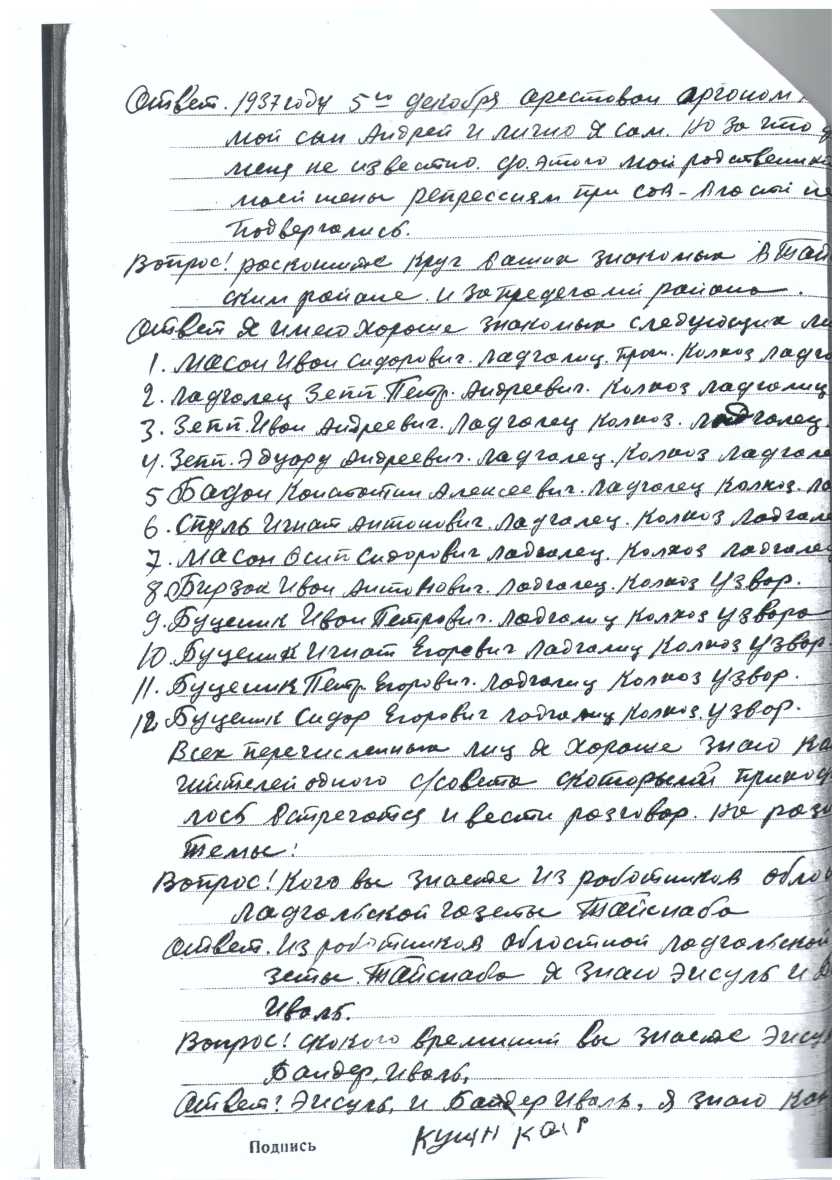 Ответ. 1937 году 5го декабря арестован
мой сын Андрей и лично я сам. Но за что
меня не известно. до. этого мой родственник
моей жены репрессиям при сов-власти
Подвергались.
Вопрос! роскошите круг ваших знакомых в Тай
ским районе. и за пределами района.
Ответ я имею хороше знакомых следующих
1. Масон Иван Сидорович. Ладгалиц. Колхоз Ладга
2. Ладгалец Зепп Петр. Андреевич. Колхоз Ладгалиц
3. Зепп. Иван Андреевич. Ладгалец Колхоз. Ладгалец.
4. Зепп. Эдуард Андреевич. Ладгалец. Колхоз Ладгале
5 Бадон Константин Алексеевич. Ладгалец Колхоз. Ла
6. Спуль Игнат Антонович. Ладгалец. Колхоз Ладгале
7. Масон Осип Сидорович Ладгалец. Колхоз Ладгалец
8. Бирзак Иван Антонович. Ладгалец. Колхоз Узвор.
9. Буценик Иван Петрович. Ладгалиц Колхоз Узвора
10. Буценик Игнат Егорович Ладгалиц Колхоз Узвор.
11. Буценик Петр. Егорович. Ладгалиц Колхоз Узвор.
12. Буценик Сидор Егорович Ладгалиц Колхоз. Узвор.
Всех перечисленных лиц я хороше знаю ка
жителей одного с/совета скоторыми приход
лось встречатся и вести разговор. На разн
темы:
Вопрос! Кого вы знаете из работников обла
Ладгальской газеты Тайснаба
Ответ. Из работников областной Ладгальской
зеты. Тайснаба я знаю Эйсуль и
Иваль.
Вопрос! скокого времиний вы знаете Эйсу
Бандер, Иваль,
Ответ! Эйсуль, и Бандер Иваль, я знаю как
Подпись